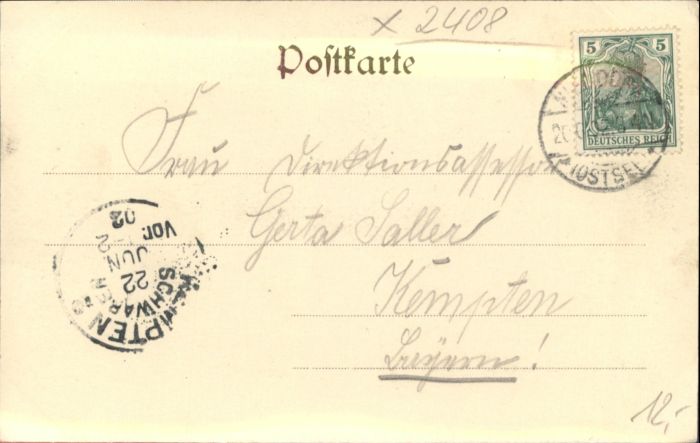 x 2408
Postkarte
5 5
DEUTSCHES REICH
(OSTSEE)
Frau Direktionsassessor
Gerta Saller
Kempten
Bayern!
KEMPTEN
SCHWABEN
22
JUN
Vor.
02
12,-